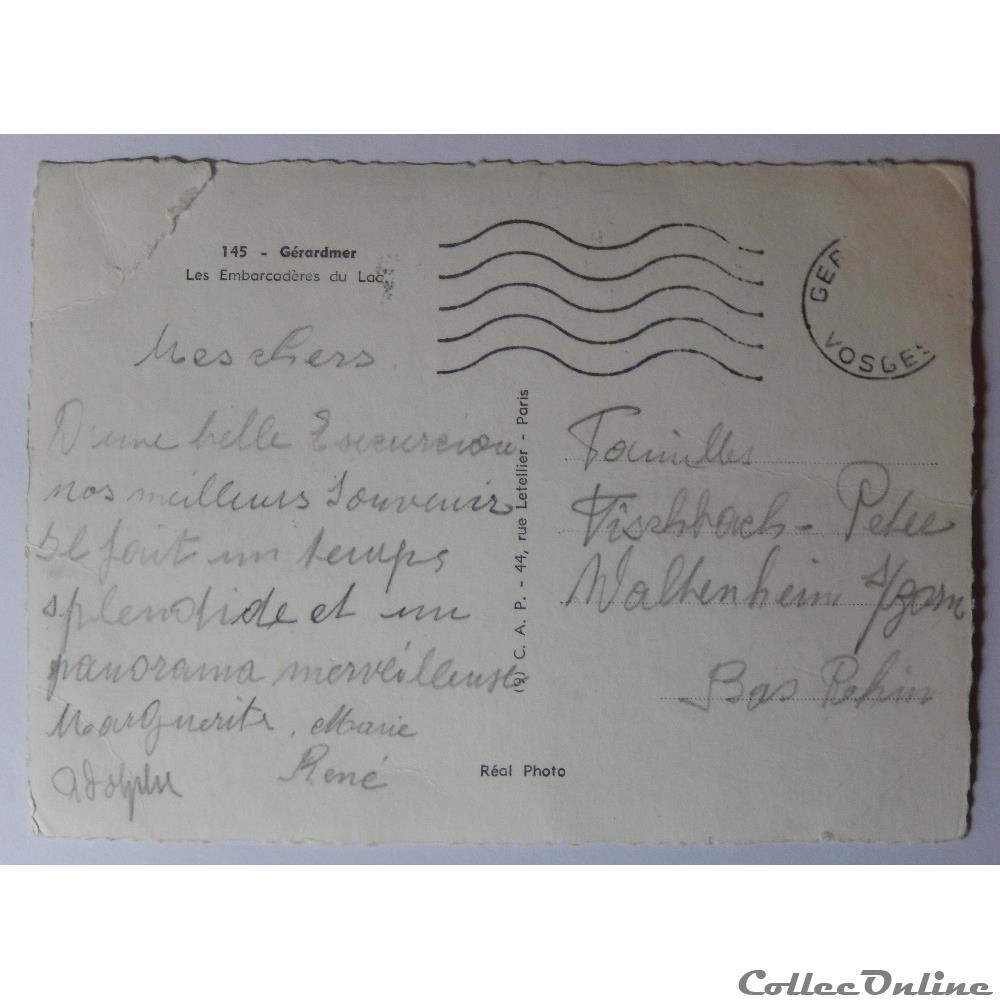 145 - Gérardmer
Les Embarcadères du Lac
GER
VOSGES
Mes chers
D'une belle Exccurcion
nos meilleurs Souvenir
Il fait un temps
splendide et un
panorama merveilleuse
Marguerite, Marie
Adolphe René
(9) C. A. P. - 44, rue Letellier - Paris
Familles
Fischbach - Peter
Waltenheim s/Zorn
Bas Rhin
Réal Photo
CollecOnline